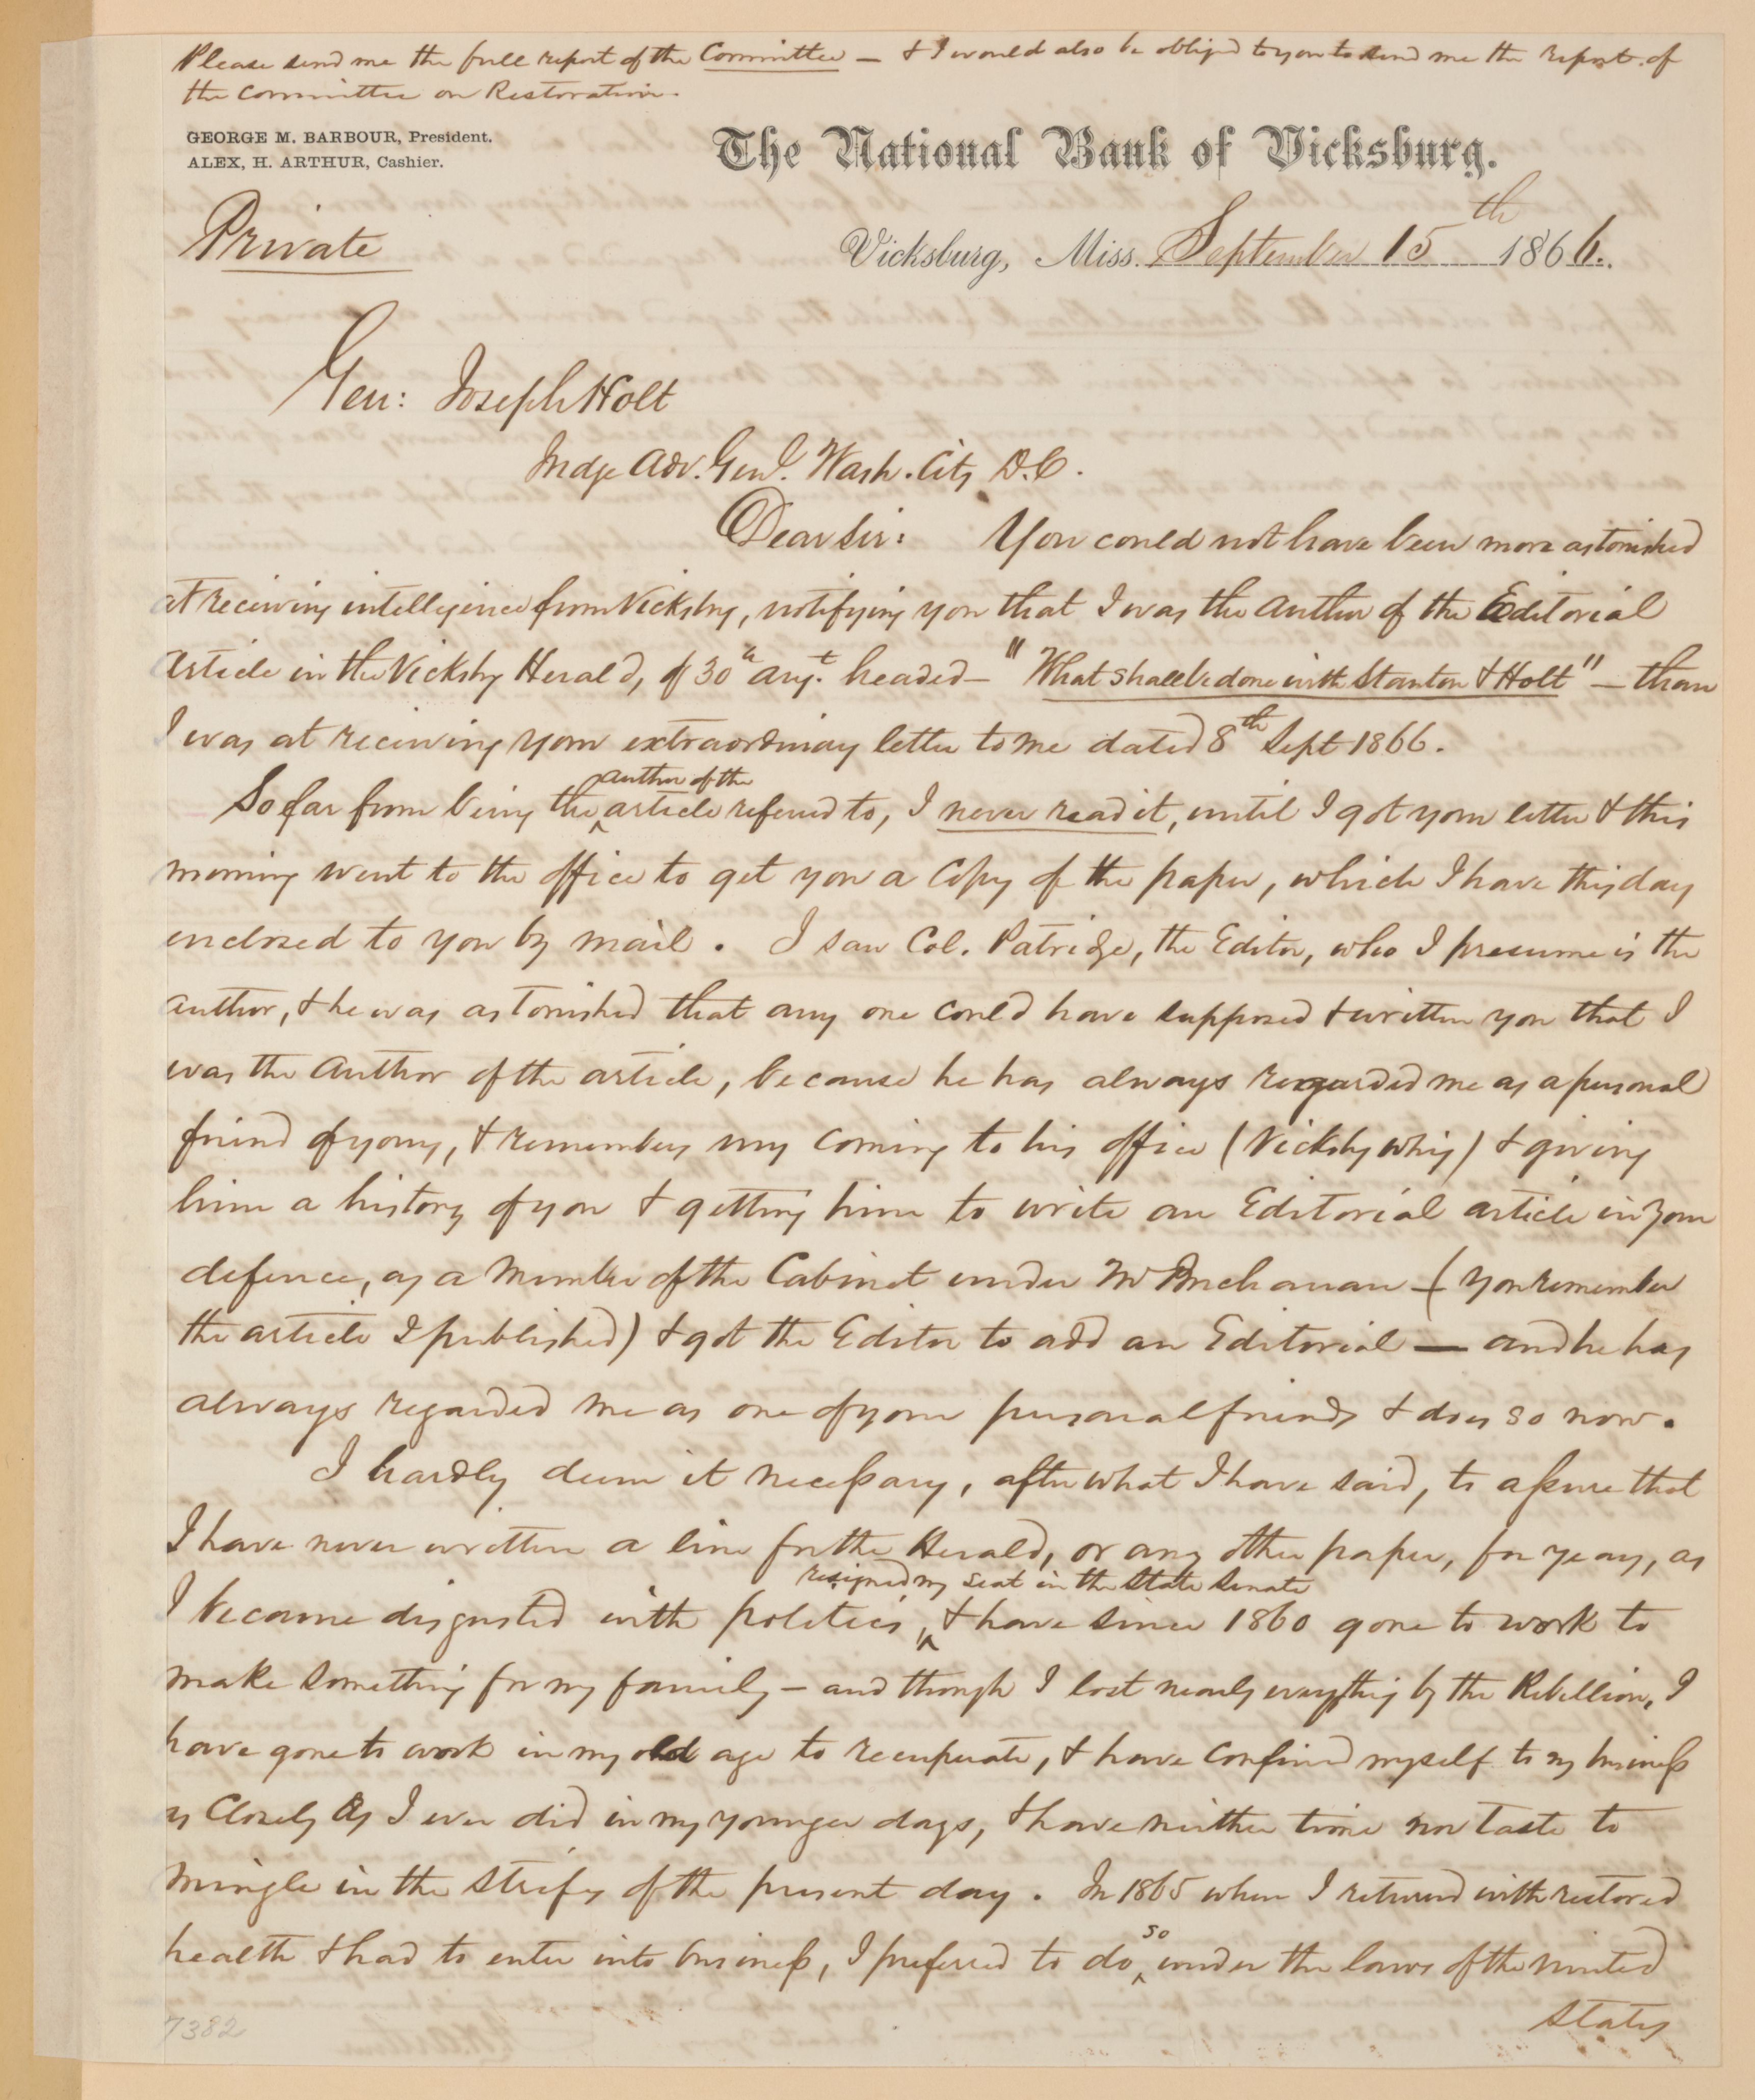 Please send me the full report of the Committee — & I would also be obliged to you to send me the report of
the committee on Restoration.
GEORGE M. BARBOUR, President.
ALEX, H. ARTHUR, Cashier.
The National Bank of Vicksburg.
Private
Vicksburg, Miss. September 15th 1866.
Gen: Joseph Holt
Judge Adv. Genl. Wash. City D.C.
Dear Sir: You could not have been more astonished
at receiving intelligence from Vicksbg, notifying you that I was the author of the Editorial
article in the Vicksbg Herald, of 30th Augt. headed — "What shall be done with Stanton & Holt" — than
I was at receiving your extraordinay letter to me dated 8th Sept 1866.
So far from being the author of the article refered to, I never read it, until I got your letter & this
morning went to the office to get you a copy of the paper, which I have this day
enclosed to you by mail. I saw Col. Patridge, the Editor, who I presume is the
author, & he was astonished that any one could have supposed & written you that I
was the author of the article, because he has always regarded me as a personal
friend of yours, & remembers my coming to his office (Vicksbg Whig) & giving
him a history of you & getting him to write an Editorial article in your
defence, as a member of the Cabinet under Mr Buchanan — (you remember
the article I published) & got the Editor to add an Editorial — and he has
always regarded me as one of your personal friends & does so now.
I hardly deem it necessary, after what I have said, to assure that
I have never written a line for the Herald, or any other paper, for years, as
I became disgusted with politics, resigned my seat in the State Senate & have since 1860 gone to work to
make something for my family — and though I lost nearly everything by the Rebellion, I
have gone to work in my old age to recuperate, & have confined myself to my business
as closely as I ever did in my younger days, & have neither time nor taste to
mingle in the strifes of the present day. In 1865 when I returned with restored
health & had to enter into business, I preferred to do so under the laws of the united
States
7382